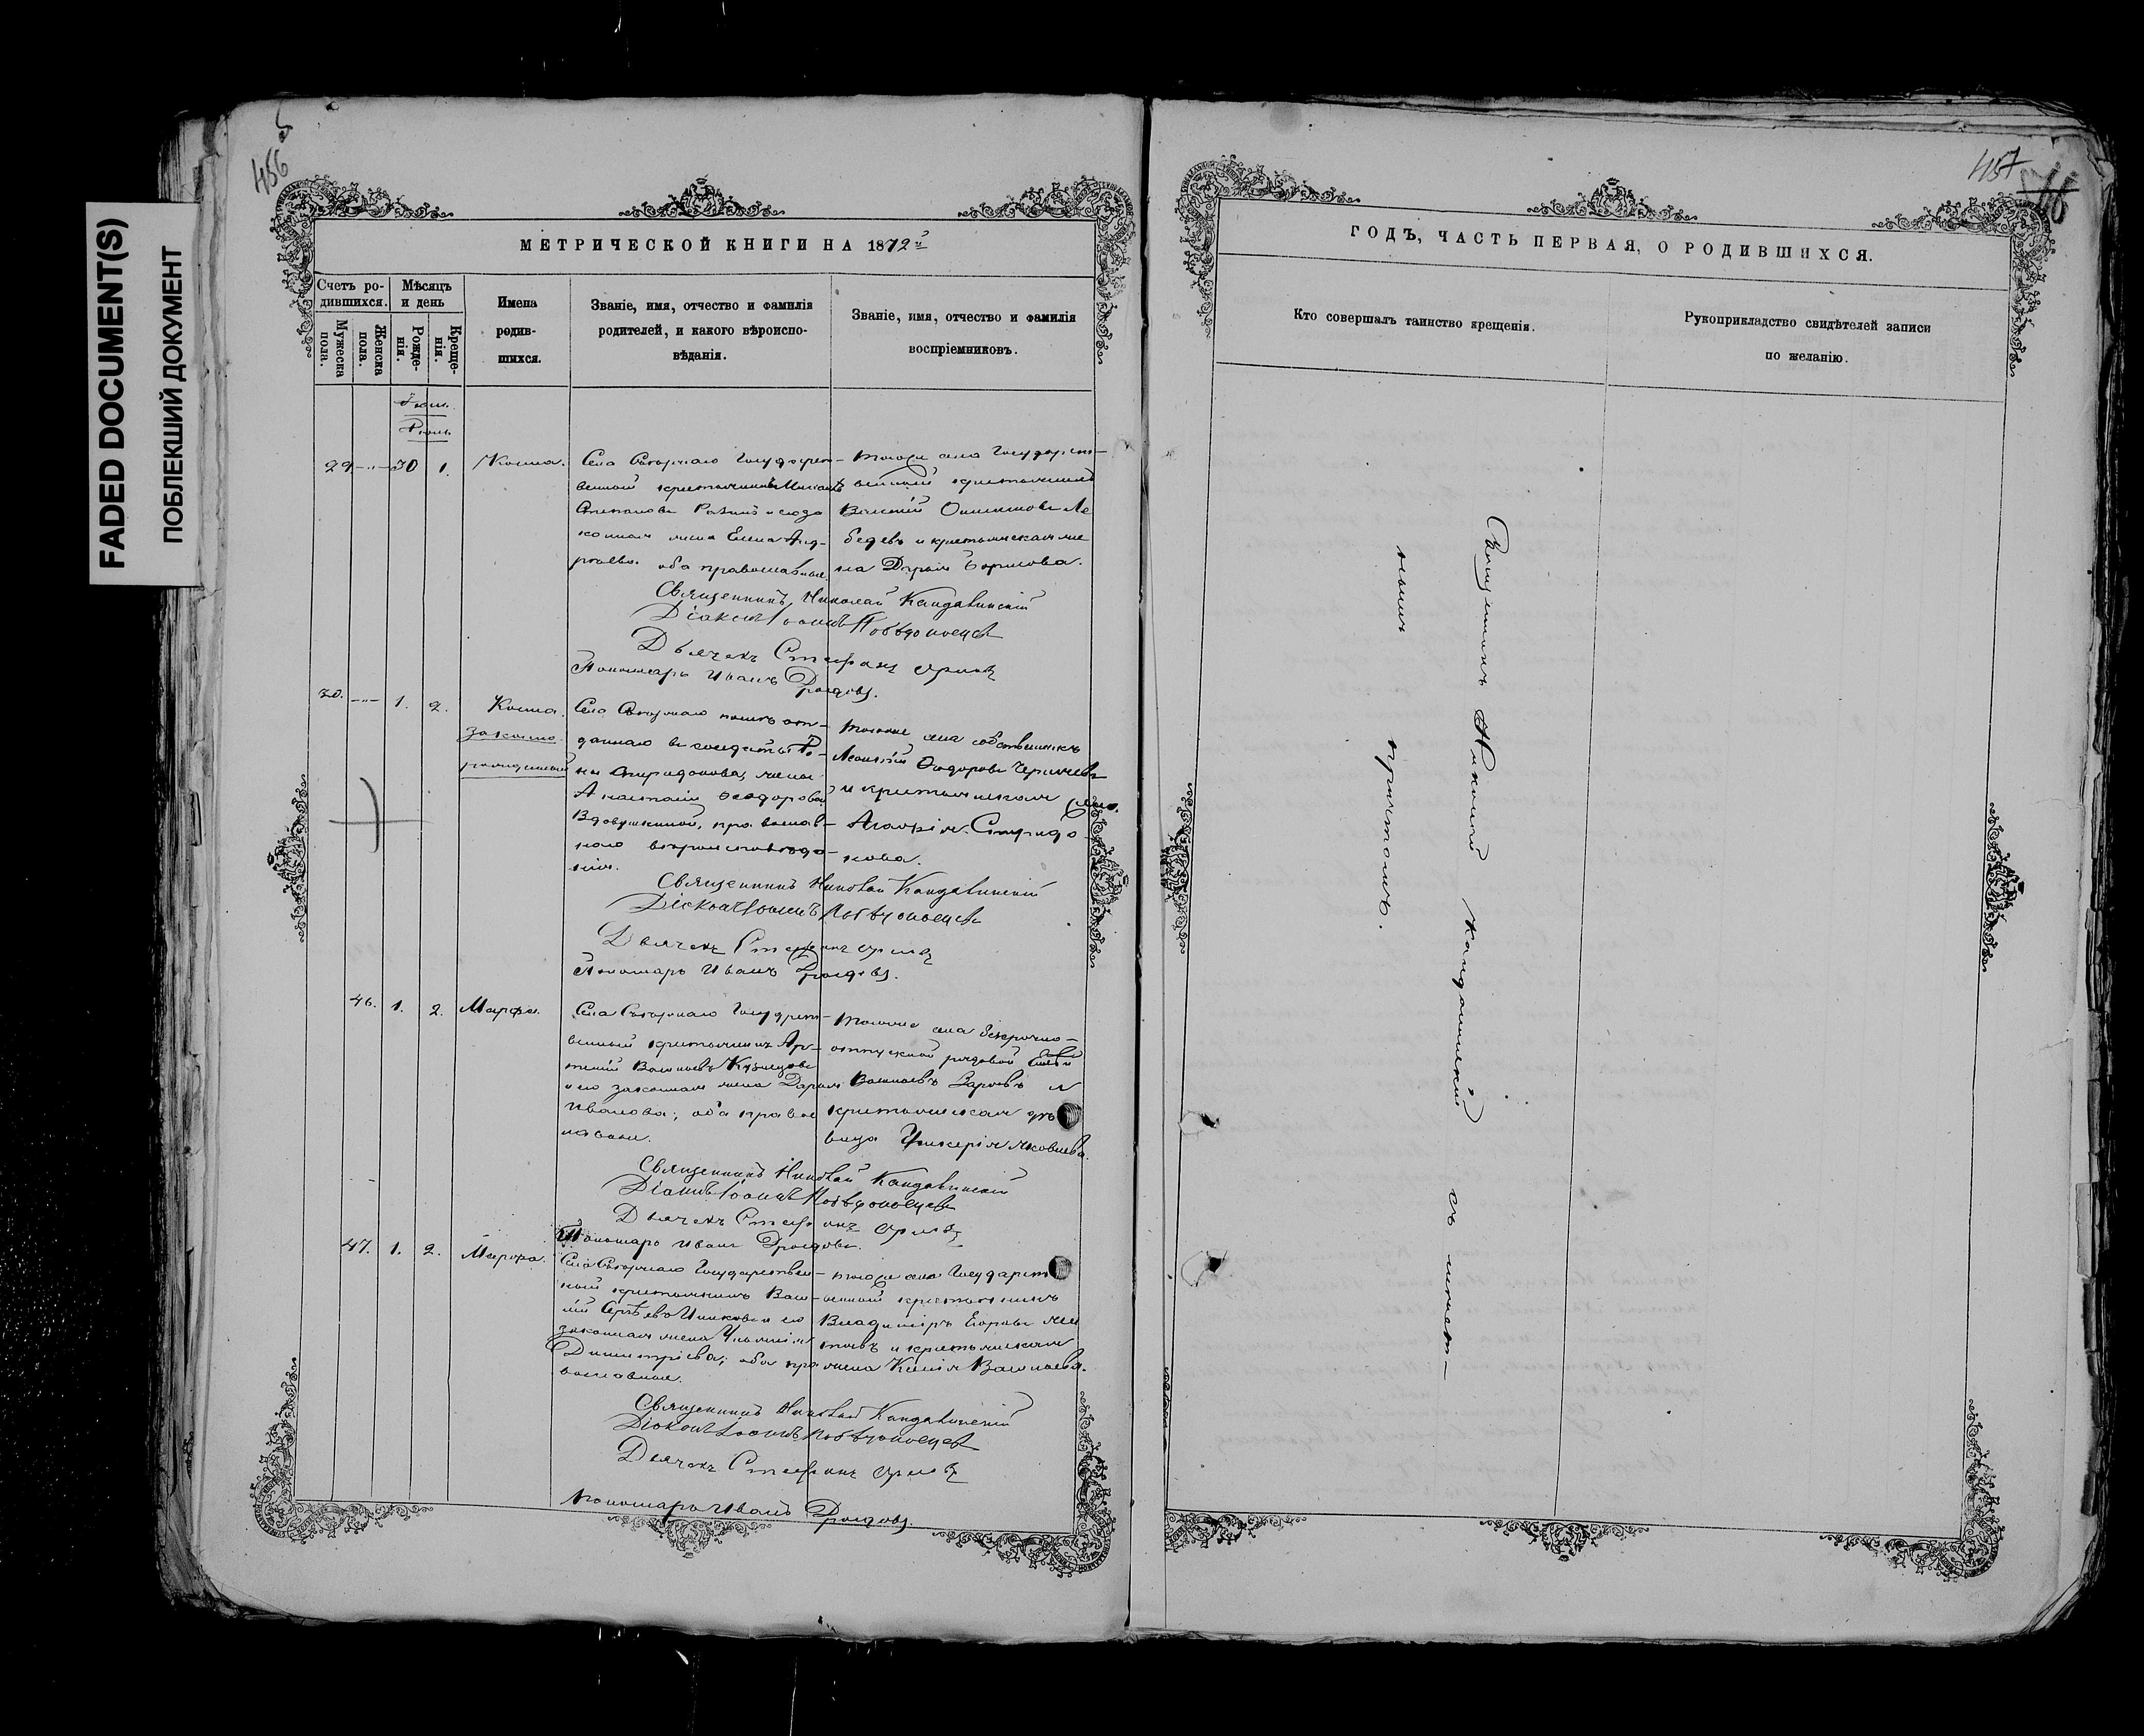 FADED DOCUMENT(S)
ПОБЛЕКШИЙ ДОКУМЕНТ
456
457
МЕТРИЧЕСКОЙ КНИГИ НА 1872й
Счетъ ро-
дившихся.
Мужеска
пола.
Женска
пола.
Мѣсяцъ
и день
Рожде-
нія.
Креще-
нія.
Имена
родив-
шихся.
Званіе, имя, отчество и фамилія
родителей, и какого вѣроиспо-
вѣданія.
Званіе, имя, отчество и фамилія
воспріемниковъ.
29 30 1. Косма.
Села Государст-
венный крестьянинъ
законная жена Елена Анд-
реева. оба православные.
тогоже села Государст-
венный крестьянинъ
Василій Ле
бедевъ и крестьянская же
на Дарья Борисова.
Священникъ Николай Кандалинскій
Діаконъ Іоаннъ Побѣдоносцевъ
Дьячекъ Стефанъ Орловъ
Пономарь Иванъ Дроздовъ.
30. 1. 2. Косма.
законно-
рожденный
Села
даннаго въ солдаты
Спиридонова, жены
Анастасіи Ѳеодоровой
Вдовушкиной, православ-
наго вѣроисповѣда-
нія.
тогоже села собственникъ
Ѳеодоровъ
и крестьянская
Спиридо-
нова.
Священникъ Николай Кандалинскій
Діаконъ Іоаннъ Побѣдоносцевъ
Дьячекъ Стефанъ Орловъ
Пономарь Иванъ Дроздовъ.
46. 1. 2. Марфа.
Села Государст-
венный крестьянинъ Ар-
темій Васильевъ Кузнецовъ
и его законная жена Дарья
Иванова; оба право
славные.
тогоже села безсрочно-
отпускной рядовой
Васильевъ и
крестьянская дѣ
вица Гликерія Яковлева.
Священникъ Николай Кандалинскій
Діаконъ Іоаннъ Побѣдоносцевъ
Дьячекъ Стефанъ Орловъ
Пономарь Иванъ Дроздовъ.
47. 1. 2. Марфа.
Села Государствен-
ный крестьянинъ Васи-
лій и его
законная жена
Димитріева; оба пра
вославные.
тогоже села Государст
венный крестьянинъ
Владиміръ Егоровъ
и крестьянская
жена Васильева.
Священникъ Николай Кандалинскій
Діаконъ Іоаннъ Побѣдоносцевъ
Дьячекъ Стефанъ Орловъ
Пономарь Иванъ Дроздовъ.
ГОДЪ, ЧАСТЬ ПЕРВАЯ, О РОДИВШИХСЯ.
Кто совершалъ таинство крещенія.
Рукоприкладство свидѣтелей записи
по желанію.
Священникъ Николай Кандалинскій съ мѣст-
нымъ причтомъ.